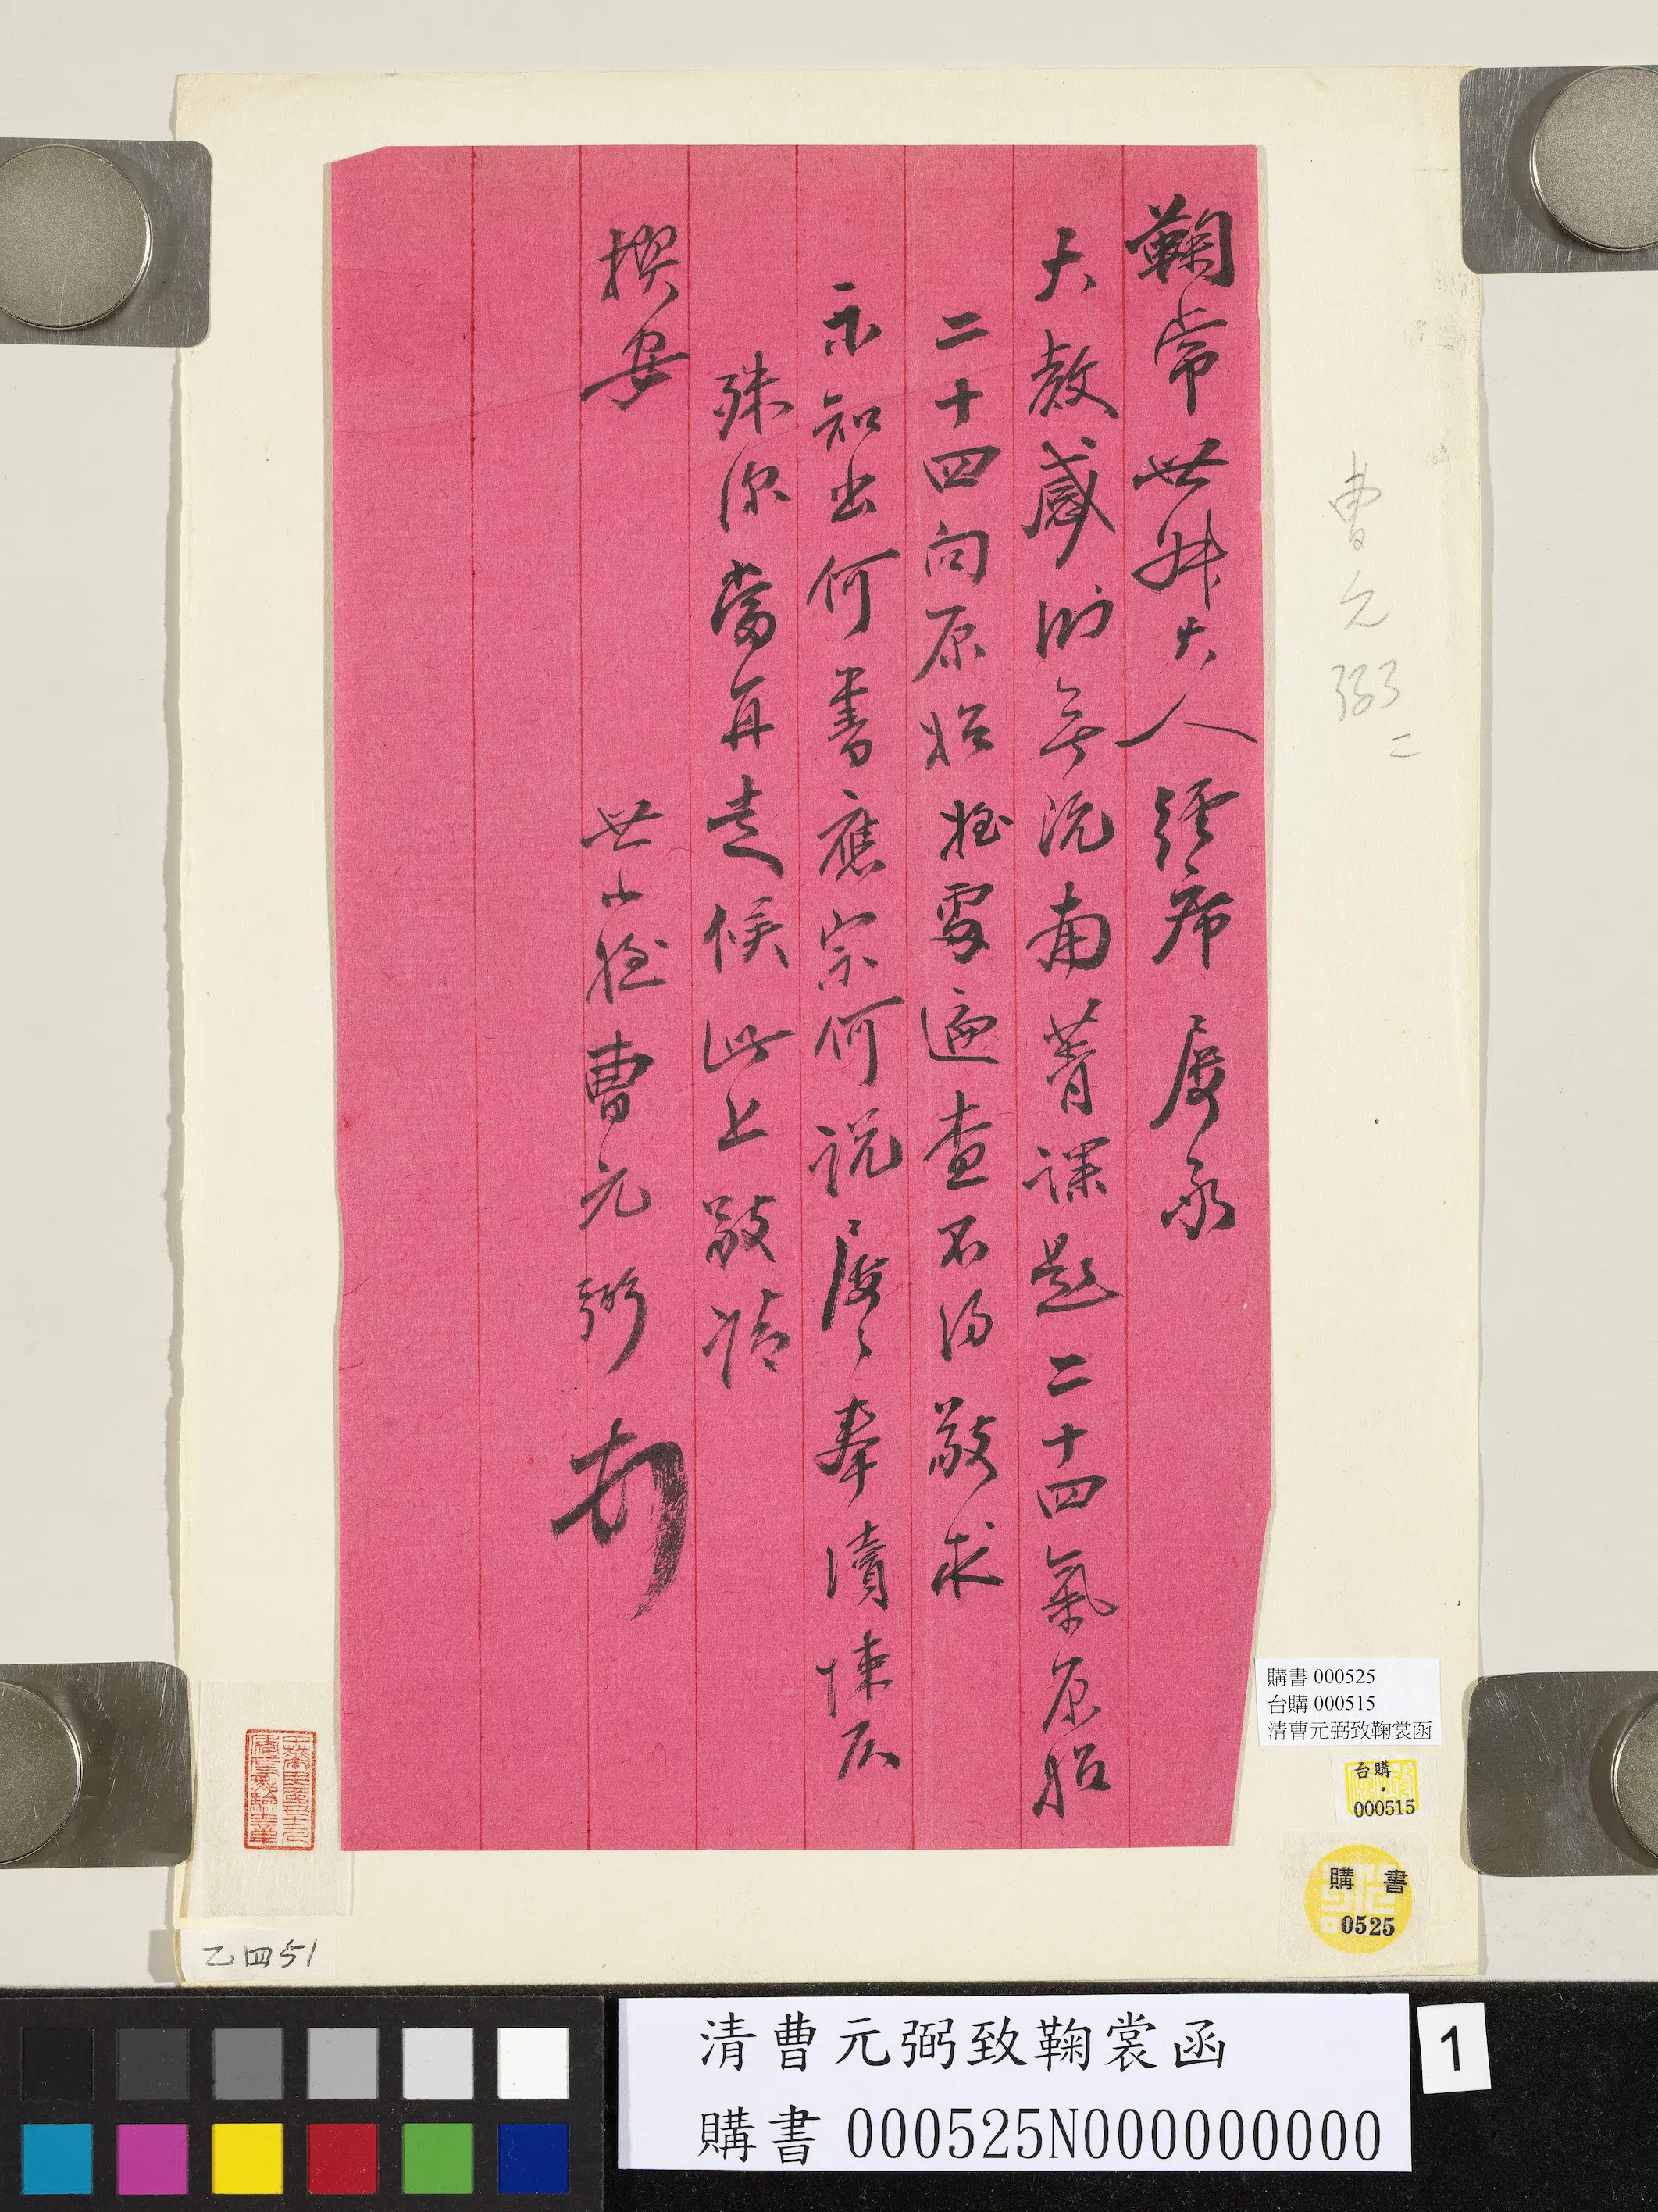 鞠常世叔大人經席屢承
大教感無南菁課題二十四氣原始
二十四向原始姪處遍查不得敬求
示知出何書應宗何説屢々奉瀆悚仄
殊深當再走候此上敬請
撰安
世小姪曹元弼
曹元弼 二
購書 000525
台購 000515
清曹元弼致鞠裳函
台購
000515
購書
0525
乙四51
清曹元弼致鞠裳函
購書 000525N000000000
1